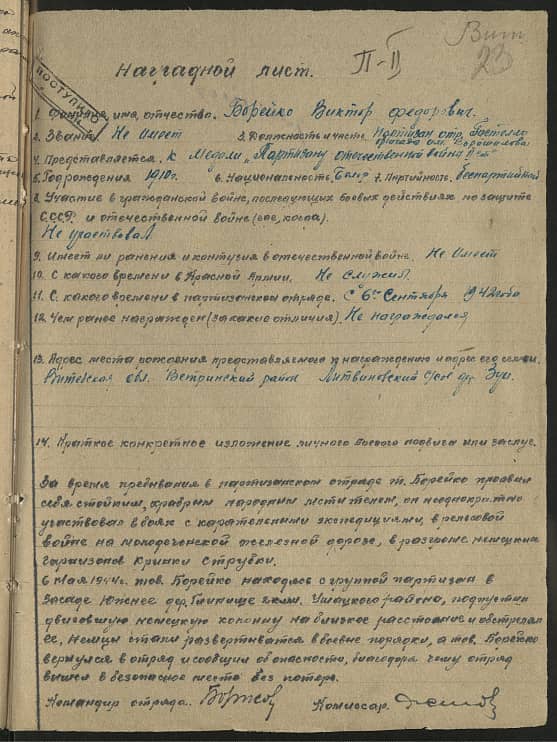 Вит
23
П-II
Наградной лист.
ПОСТУПИ
1. Фамилия, имя, отчество. Борейко Виктор Федорович.
2. Звание Не имеет 3. Должность и часть Партизан отр. Гастелло
бригада им. Ворошилова
4. Представляется. к Медали "Партизану отечественной войны II ст"
5. Год рождения 1910г. 6. Национальность Белор 7. Партийность. беспартийный
8. Участие в гражданской войне, последующих боевых действиях по защите
СССР. и отечественной войне (где, когда).
Не участвовал.
9. Имеет ли ранения и контузия в отечественной войне. Не имеет
10. С какого времени в Красной Армии. Не служил.
11. С. какого времени в партизанском отряде. С 6го Сентября 1942 года
12. Чем ранее награжден (за какие отличия). Не награждался
13. Адрес места рождения представляемого к награждению и адрес его семьи.
Витебская обл. Ветринский район Литвиновский с/сов дер. Зуи.
14. Краткое конкретное изложение личного боевого подвига или заслуг.
За время пребивания в партизанском отряде т. Борейко проявил
себя стойким, храбрым народным мстителем, он неоднократно
участвовал в боях с карателеними экспедициями, в рельсовой
войне на молодеченской железной дороге, в разгроме немецких
гарнизонов Кринки Струбки.
6 Мая 1944г. тов. Борейко находясь с группой партизан в
Засаде Южнее дер. Глинище Ушацкого района, подпустил
двигавшую немецкую колонну на близкое расстояние и обстрелял
ее, Немцы стали развертыватся в боевые порядки, а тов. Борейко
вернулся в отряд и сообщил об опасности, благодоря чему отряд
вышел в безопасное место без потерь.
Командир отряда. Комиссар.